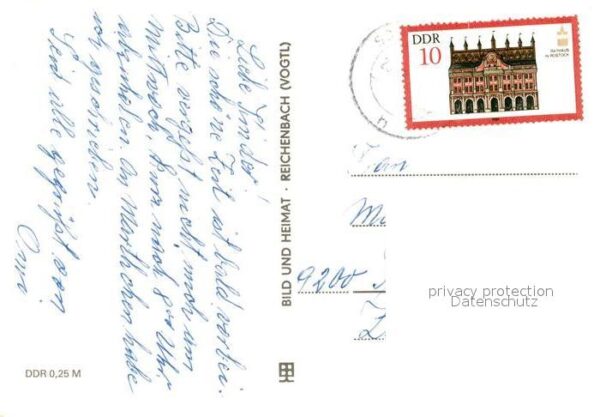 Liebe Kinder!
Die schöne Zeit ist bald vorbei.
Bitte vergeßt nicht, mich am
Mittwoch kurz nach 8⁰⁰ Uhr
abzuholen. An habe
ich geschrieben.
Seid alle gegrüßt von
Omi
DDR 0,25 M
BILD UND HEIMAT · REICHENBACH (VOGTL)
DDR
10
RATHAUS
IN ROSTOCK
9200
privacy protection
Datenschutz